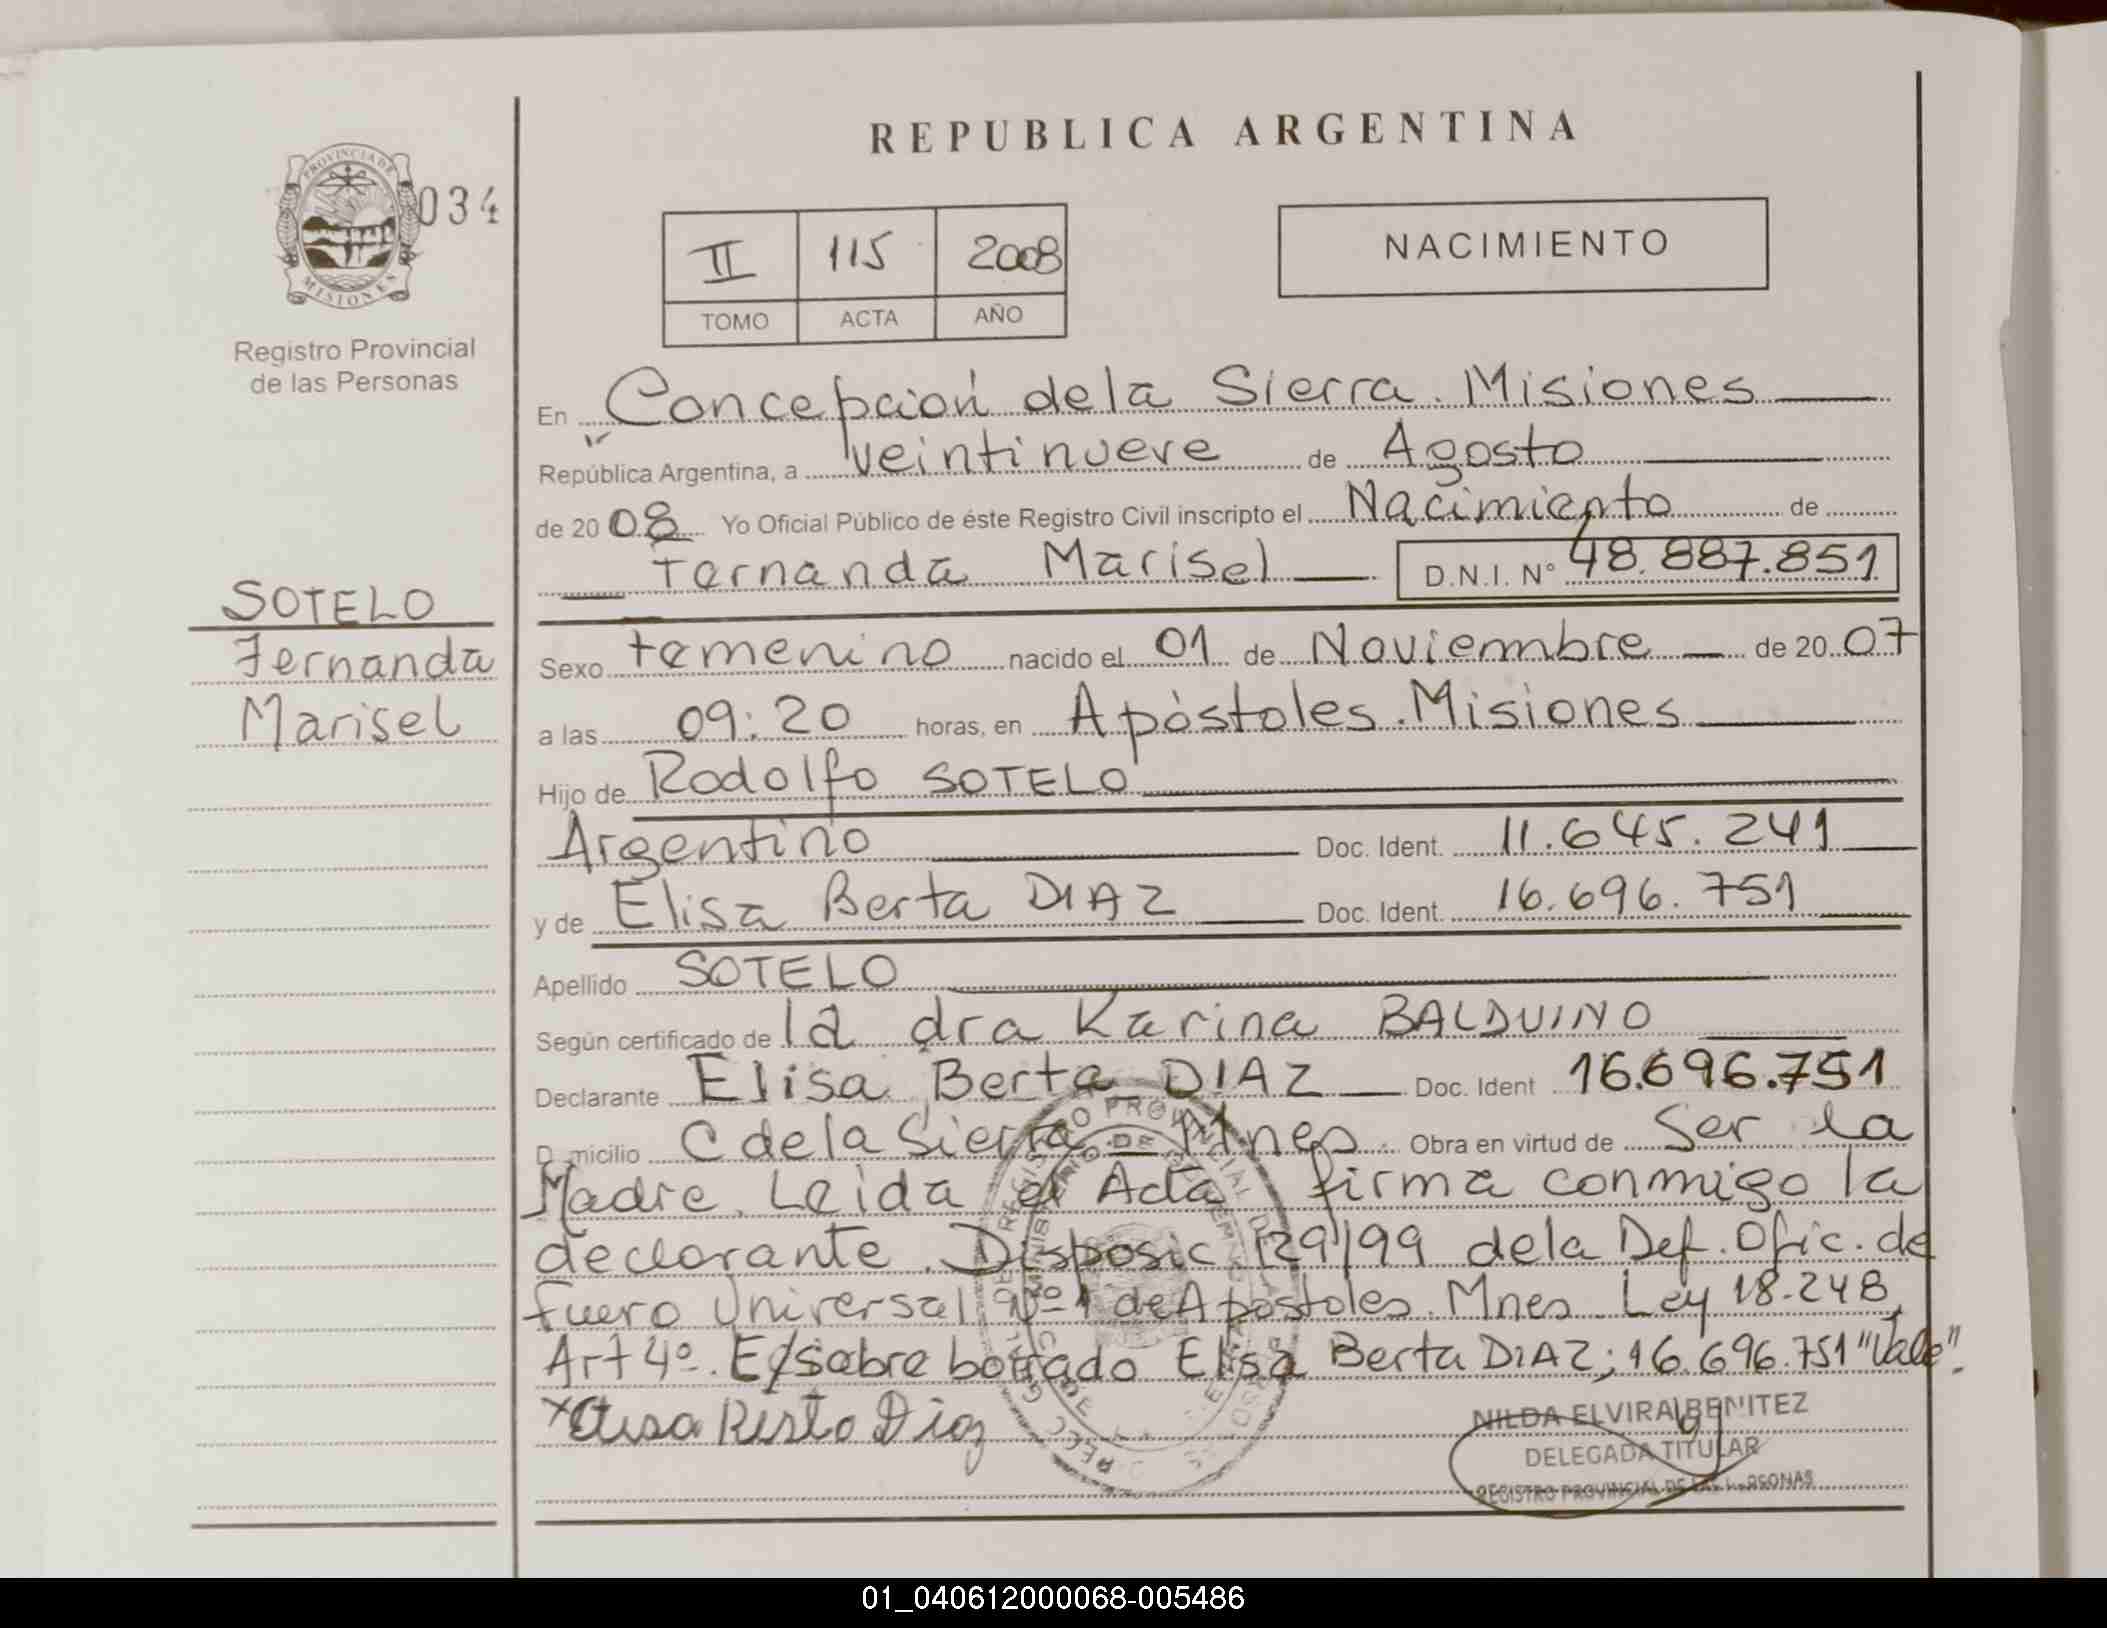 REPUBLICA ARGENTINA
PROVINCIA DE
MISIONES
034
Registro Provincial
de las Personas
II 115 2008
TOMO ACTA AÑO
NACIMIENTO
SOTELO
Fernanda
Marisel
En Concepción de la Sierra. Misiones
República Argentina, a veintinueve de Agosto
de 2008 Yo Oficial Público de éste Registro Civil inscripto el Nacimiento de
Fernanda Marisel D.N.I. N° 48.887.851
Sexo femenino nacido el 01 de Noviembre de 20 07
a las 09:20 horas, en Apóstoles. Misiones
Hijo de Rodolfo SOTELO
Argentino Doc. Ident. 11.645.241
y de Elisa Berta DIAZ Doc. Ident. 16.696.751
Apellido SOTELO
Según certificado de la dra Karina BALDUINO
Declarante Elisa Berta DIAZ Doc. Ident 16.696.751
D micilio C de la Sierra Mnes. Obra en virtud de Ser la
Madre. Leida el Acta firma conmigo la
declarante. Disposic 129/99 de la Def. Ofic. de
fuero Universal Nº 1 de Apostoles. Mnes Ley 18.248,
Art 4º. E/sobre borrado Elisa Berta DIAZ; 16.696.751 "Vale".
NILDA ELVIRA BENITEZ
DELEGADA TITULAR
REGISTRO PROVINCIAL DE LAS PERSONAS
01_040612000068-005486